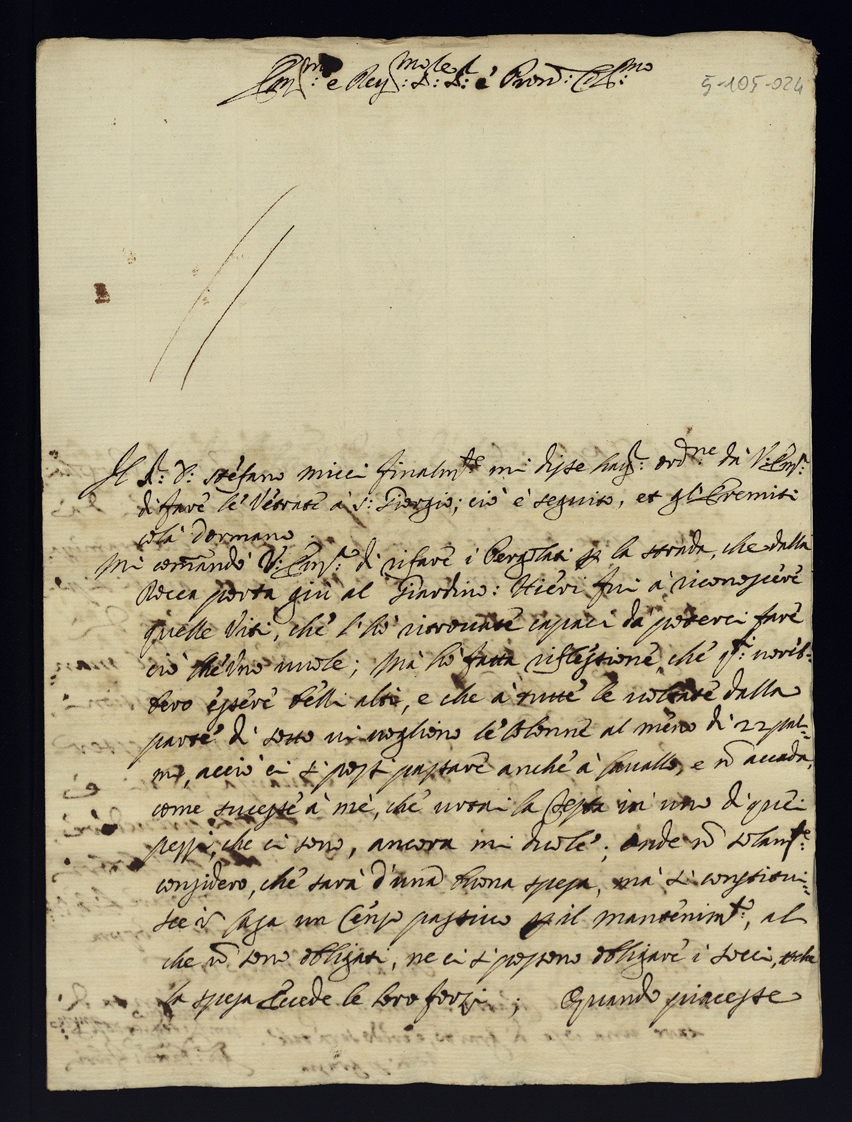 Em:mo e Rev:mo S: S: e Pron: Col:mo
5-105-024
Il S: D: Stefano Micci finalmte mi disse hav: ordne da V: Em:
di fare le Vetrate à S: Giorgio; ciò è seguito, et gl'Eremiti
colà dormano
Mi comandò V: Em: di rifare i Pergolati p la strada, che dalla
Rocca porta giù al Giardino: Hieri fui à riconoscere
quelle Viti, che l'hò ritrovate capaci da poterci fare
ciò che uno vuole; Mà hò fatta riflessione, che q:ti vorreb-
bero essere belli alti, e che à tutte le voltate dalla
parte di sotto vi vogliono le Colonne al meno di 22 pal-
mi, acciò ci si possi passare anche à Cavallo, e nō accada,
come sucesse à me, che urtai la testa in uno di quei
pezzi, che ci sono, ancora mi duole; onde nō solamte:
considero, che sarà d'una buona spesa, mà si constitui-
sce in Casa un Censo passivo p il mantenimto:, al
che nō sono obligati, ne ci si possono obligare i socci,
la spesa eccede le loro forzi; Quando piacesse